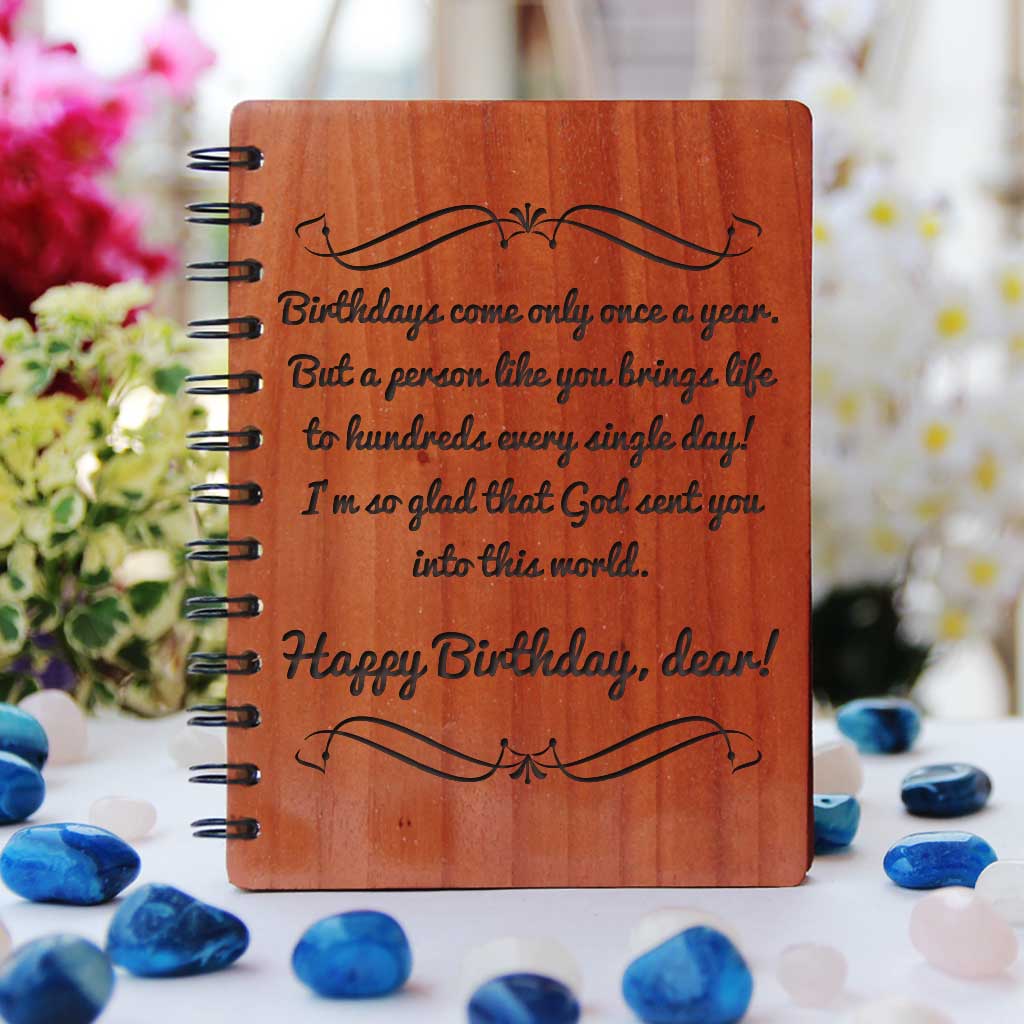 Birthdays come only once a year.
But a person like you brings life
to hundreds every single day!
I'm so glad that God sent you
into this world.
Happy Birthday, dear!